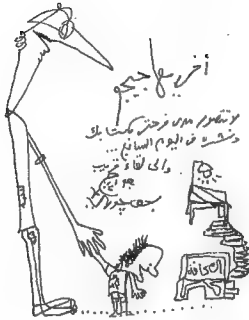 أخي
لا تتصور مدى فرحتي بكتابك
ونشره في اليوم السابع ...
وإلى لقاء قريب
جورج
الصحافة